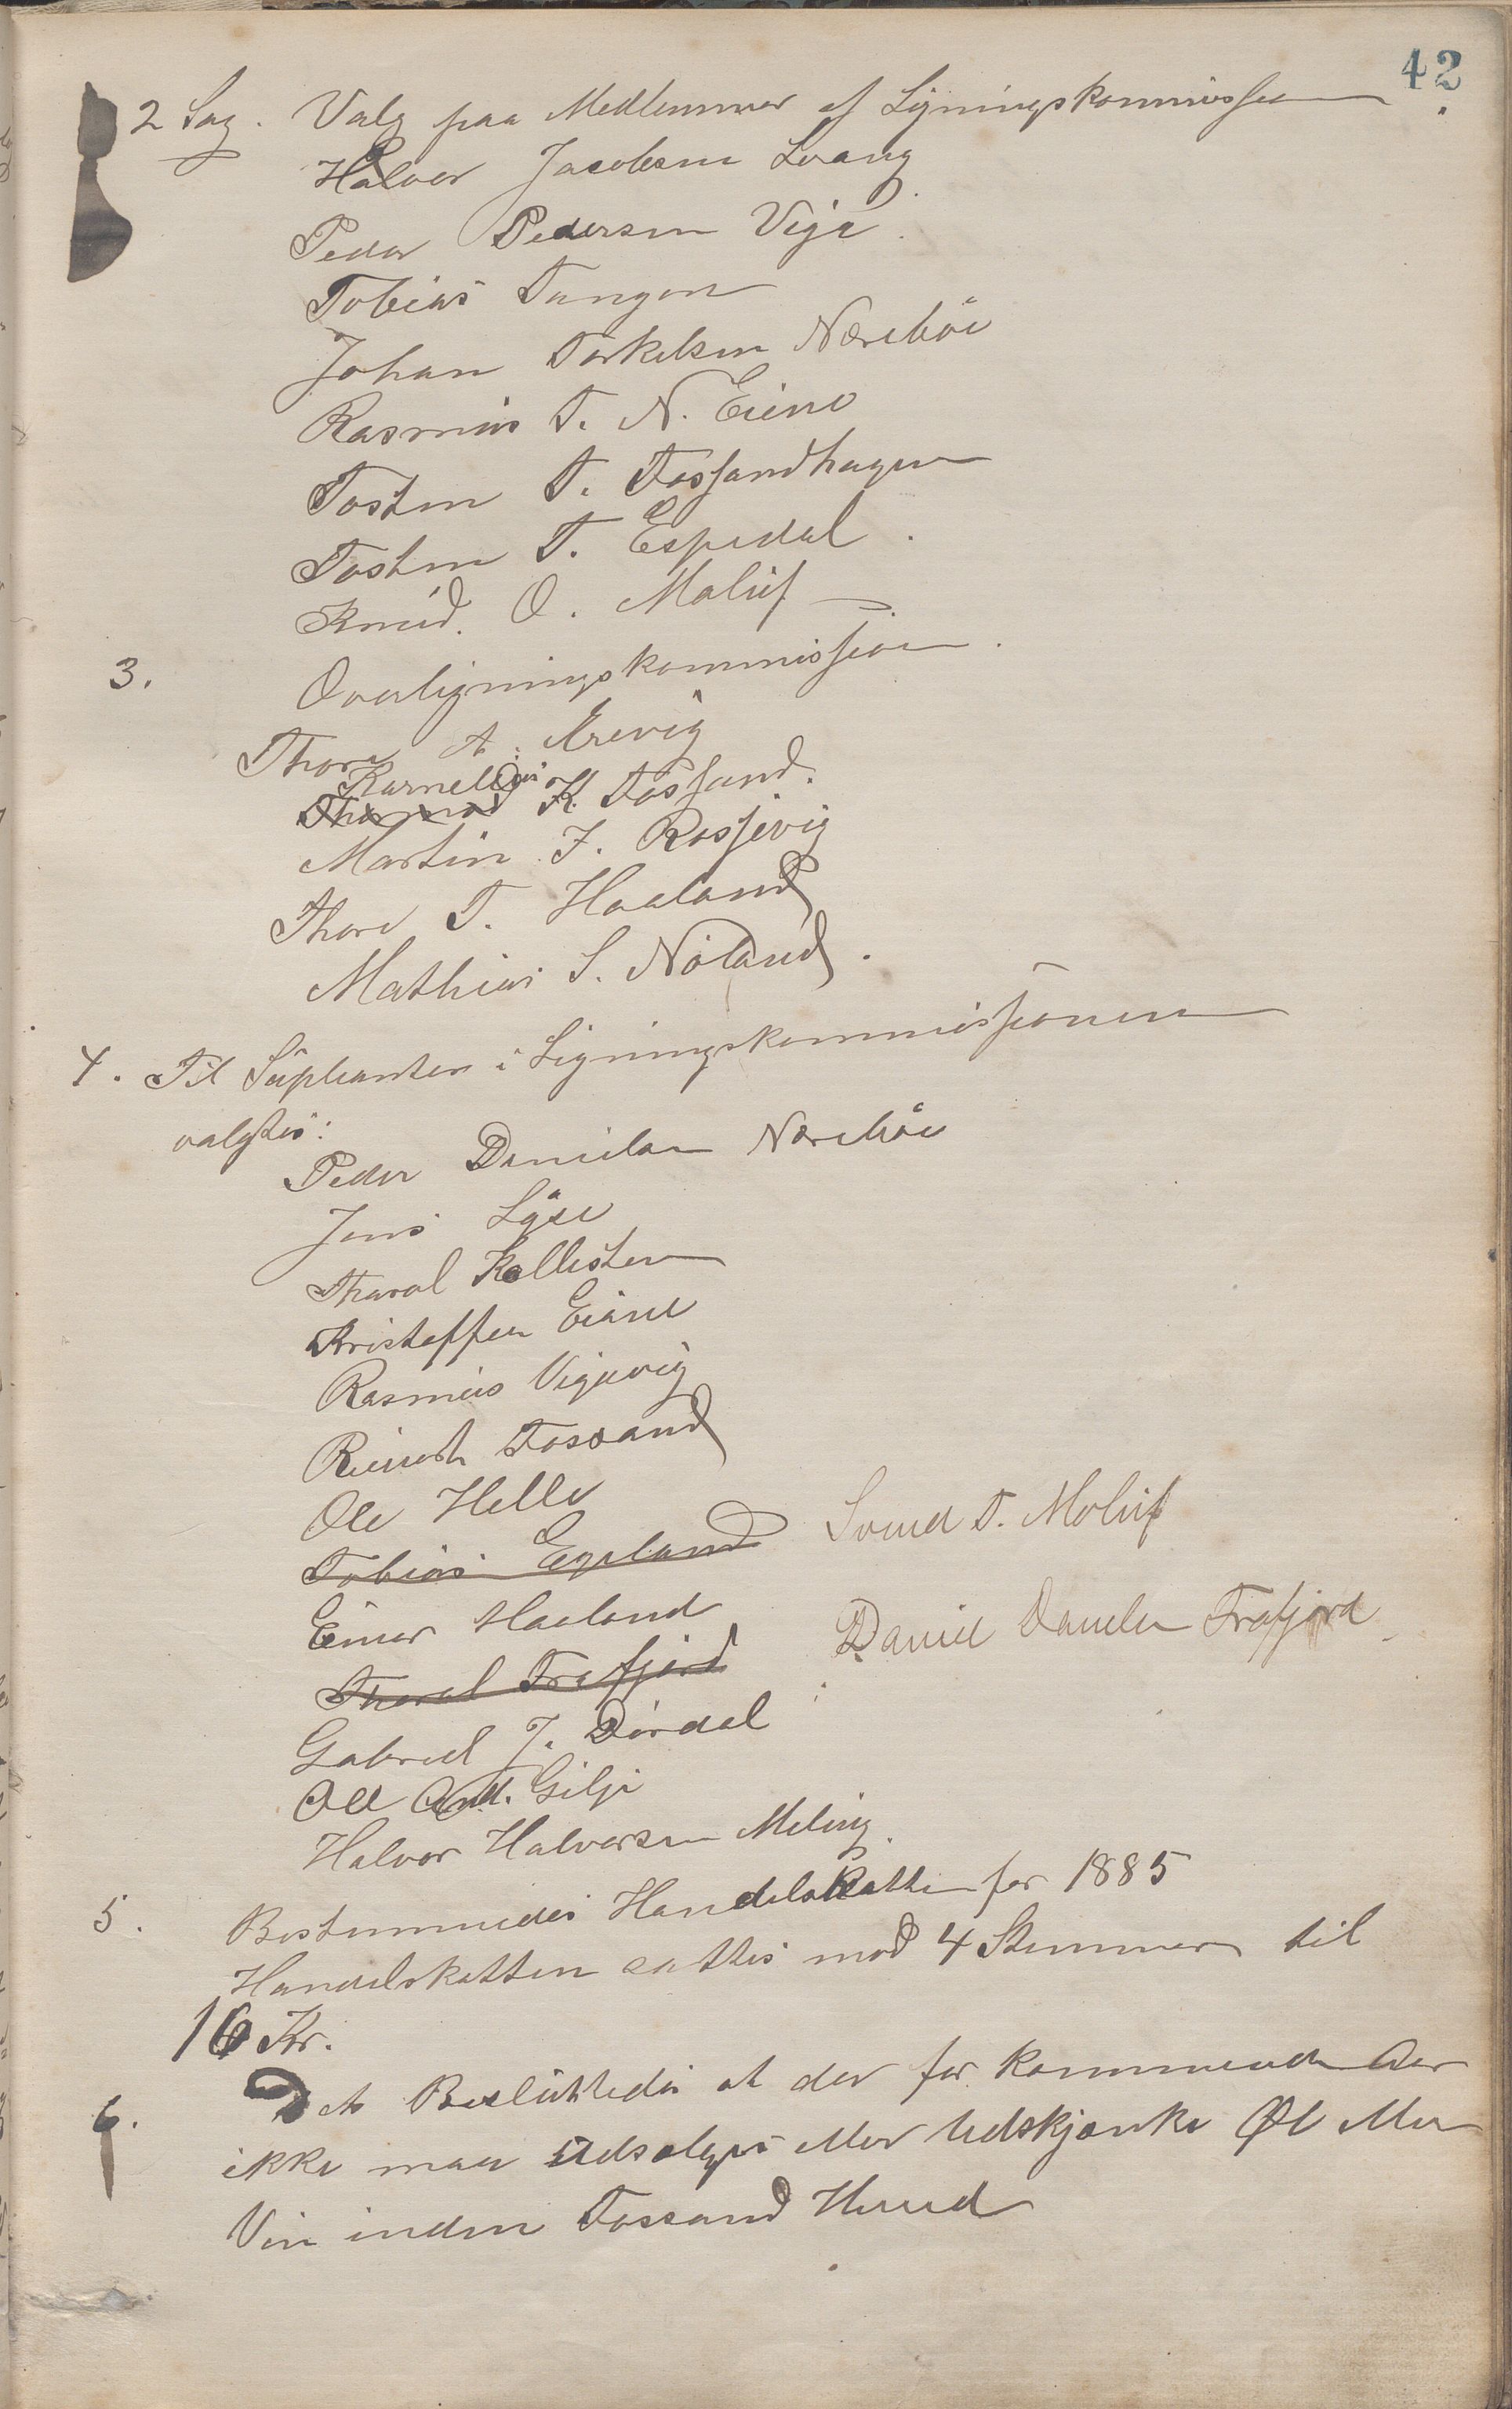 42
2 Sag. Valg paa Medlemmer af Ligningskommissionen
Halvor Jacobsen Levang
Peder Pedersen Vige.
Tobias Tungen
Johan Torkelsen Nørebøe
Rasmus T. N. Eiene
Tosten T. Fossandhagen
Tosten T. Espedal.
Knud. O. Moluf
3. Overligningskommission.
Thore A. Arevig
Karnelius
Thormod K. Fossand.
Martin J. Rossevig
Thore T. Haaland
Mathias S. Nøland.
4. Til Suplianter i Ligningskommissionen
valgtes:
Peder Danielsen Nørebøe
Jens Lyse
Tharal Kallesten
Kristoffer Eiane
Rasmus Vigevig
Reinert Fossand
Ole Helle
Tobias Egeland Svend T. Moluf
Einar Haaland
Tharal Frafjord Daniel Danielsen Frafjord
Gabriel J. Dirdal
Ole And. Gilje
Halvor Halvorsen Meling.
5. Bestemmedes Handelskatten for 1885
Handelskatten sattes med 4 Stemmer til
16 Kr.
6. Det Besluttedes at der for kommende Aar
ikke maa Udsælges eller Udskjænke Øl eller
Vin inden Fossand Herred